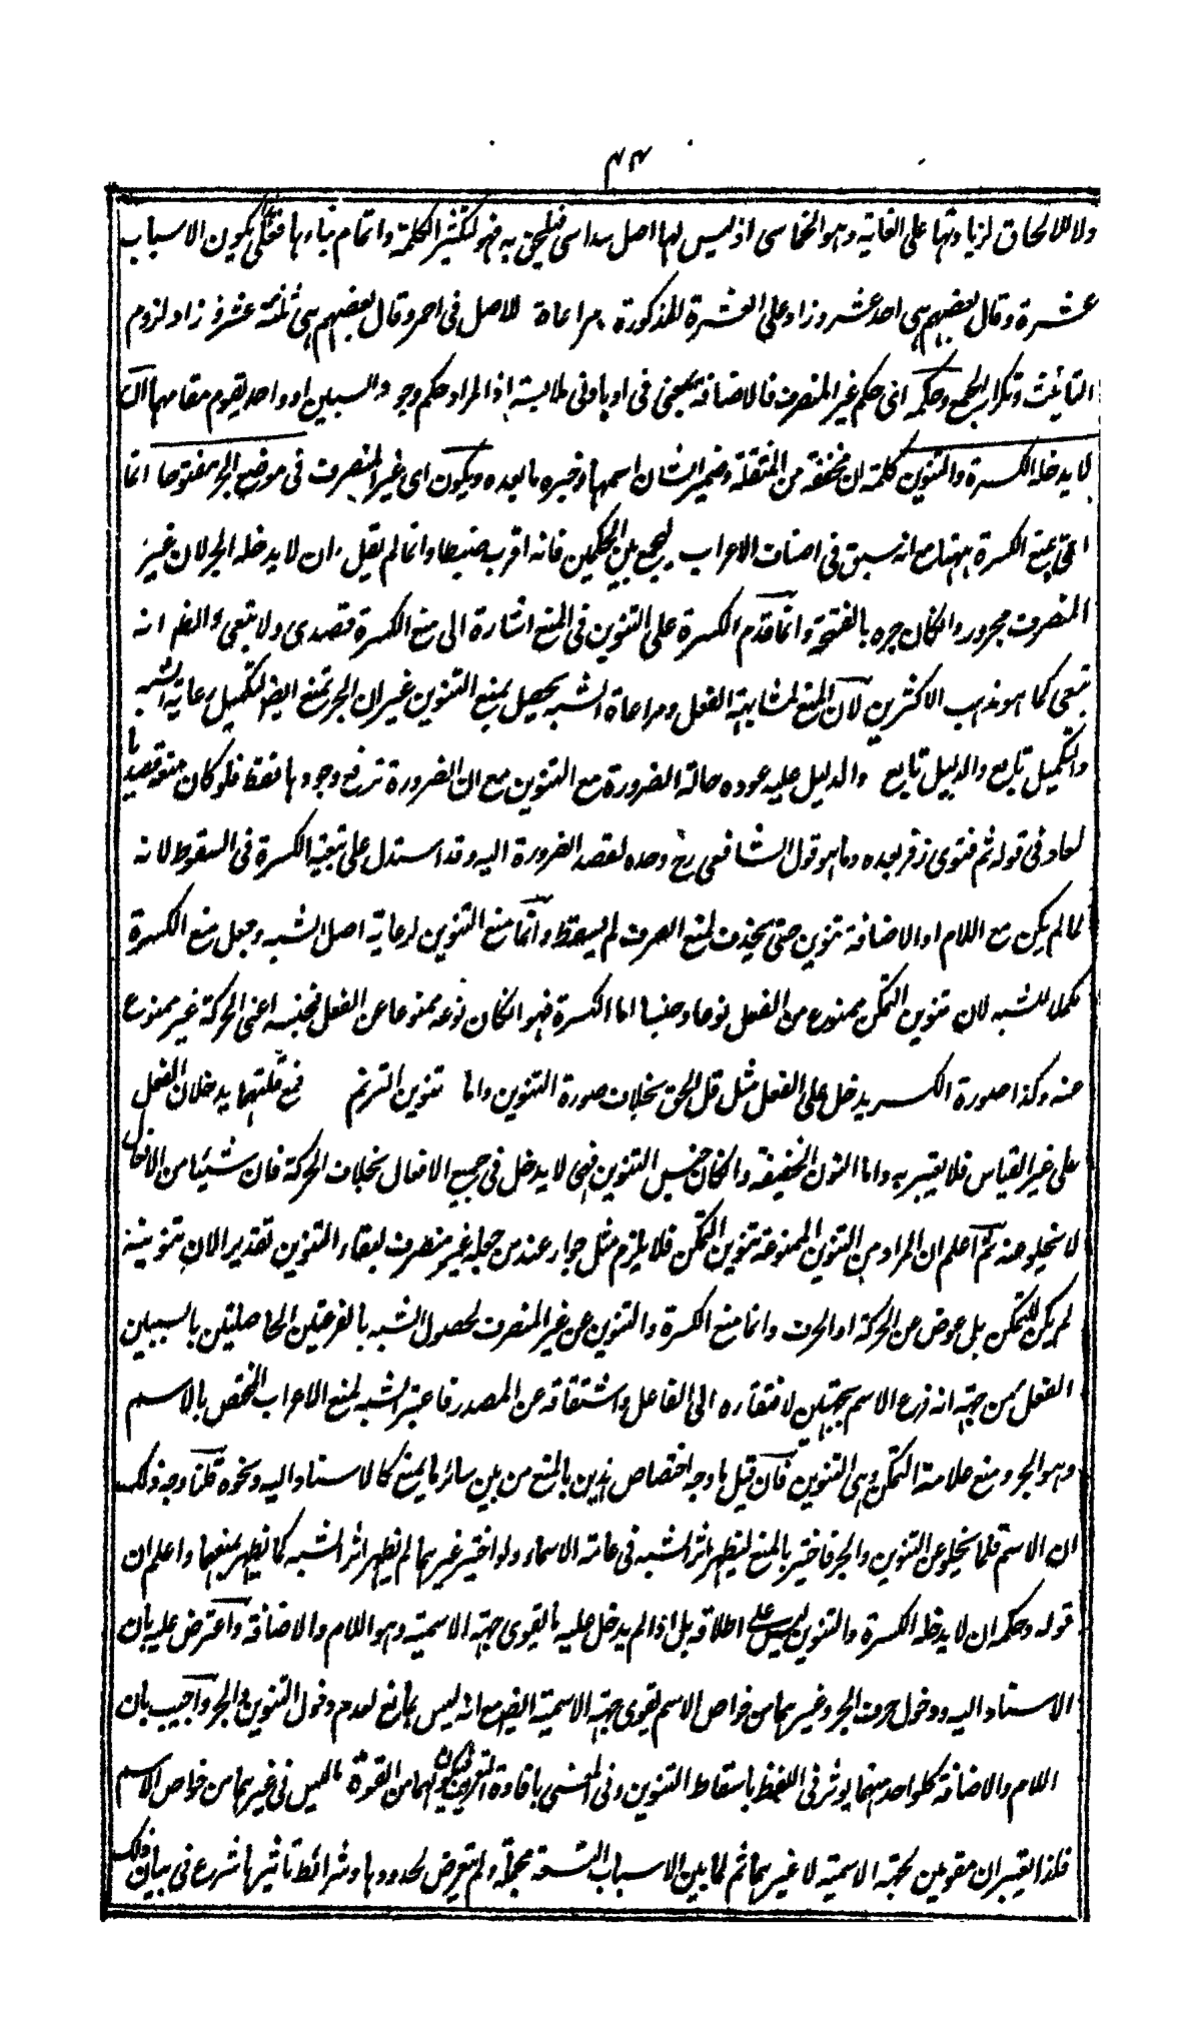 ٤٣
ولا للالحاق لزيادتها على الغاية وهو الخماسى اذ ليس لها اصل سداسى فيلحق به فهو لتكثير الكلمة واتمام بناءها فعلى يكون الاسباب
عشرة وقال بعضهم هى احد عشر وزاد على العشرة المذكورة مراعاة للاصل فى احمر وقال بعضهم هى ثلثة عشر فزاد لزوم
التانيث وتكرار الجمع وحكمه اى حكم غير المنصرف فالاضافة بمعنى فى او بادنى ملابسة اذ المراد حكم وجود السببين او واحد يقوم مقامهما ان
لا يدخله الكسرة والتنوين كلمة ان مخففة من المثقلة وضمير الشان اسمها وخبره ما بعده ويكون اى غير المنصرف فى موضع الجر مفتوحا انما
اتى بمنع الكسرة ههنا مع انه سبق فى اصناف الاعراب ليجمع بين الحكمين فانه اقرب ضبطا وانما لم يقل ان لا يدخله الجر لان غير
المنصرف مجرور وانكان جره بالفتحة وانما قدم الكسرة على التنوين فى المنع اشارة الى منع الكسرة قصدى ولا تبعى والظم انه
تبعى كما هو مذهب الاكثرين لان المنع لمشابهة الفعل ومراعاة الشبه يحصل بمنع التنوين غير ان الجر تمنع ايضا لتكميل رعاية الشبه
والتكميل تابع والدليل تابع والدليل عليه عوده حالة الضرورة مع التنوين مع ان الضرورة ترفع وجودها فقط فلو كان منعه قصديا
لعاد فى قوله ثم فتوى زفر بعده وما هو قول الشافعى رح وحده لقصد الضرورة اليه وقد استدل على تبعية الكسرة فى السقوط لانه
لما لم يكن مع اللام او الاضافة تنوين حتى يحذف لمنع الصرف لم يسقط وانما منع التنوين لرعاية اصل الشبه وجعل منع الكسرة
مكملا للشبه لان تنوين التمكن ممنوع من الفعل نوعا وجنسا اما الكسرة فهو انكان نوعه ممنوعا عن الفعل فجنسه اعنى الحركة غير ممنوع
عنه وكذا صورة الكسر يدخل على الفعل مثل قل الحق بخلاف صورة التنوين واما تنوين الترنم فمع قلتهما يدخلان الفعل
على غير القياس فلا يعتبر به واما النون الخفيفة وانكان جنس التنوين فهى لا يدخل فى جميع الافعال بخلاف الحركة فان شيئا من الافعال
لا يخلو عنه ثم اعلم ان المراد من التنوين الممنوعة تنوين التمكن فلا يلزم مثل جوار عند من جعله غير منصرف لبقاء التنوين تقديرا لان تنوينه
لم يكن للتمكن بل عوض عن الحركة او الحرف وانما منع الكسرة والتنوين عن غير المنصرف لحصول الشبه بالفرعيتين الحاصلتين بالسببين
الفعل من جهة انه فرع الاسم بجهتين لافتقاره الى الفاعل واشتقاقه عن المصدر فاعتبر الشبه لمنع الاعراب المختص بالاسم
وهو الجر ومنع علامة التمكن وهى التنوين فان قيل ما وجه اختصاص هذين بالمنع من بين سائر ما يمنع كالاسناد اليه ونحوه قلنا وجه ذلك
ان الاسم قلما يخلو عن التنوين والجر فاختير بالمنع ليظهر اثر الشبه فى عامة الاسماء ولو اختير غيرهما لم يظهر اثر الشبه كما يظهر بمنعهما واعلم ان
قوله وحكمه ان لا يدخله الكسرة والتنوين ليس على اطلاقه بل اذا لم يدخل عليه ما يقوى جهة الاسمية وهو اللام والاضافة واعترض عليه بان
الاسناد اليه ودخول حرف الجر وغيرهما من خواص الاسم يقوى جهة الاسمية ايضا مع انه ليس بمانع لعدم دخول التنوين والجر واجيب بان
اللام والاضافة كلواحد منهما يوثر فى اللفظ باسقاط التنوين وفى المعنى بافادة التعريف فيكون لهما من القوة ما ليس فى غيرهما من خواص الاسم
فلذا يعتبران مقويين لجهة الاسمية لا غيرهما ثم لما بين الاسباب التسعة مجملة ولم يتعرض لحدودها وشرائط تاثيرها شرع فى بيان ذلك